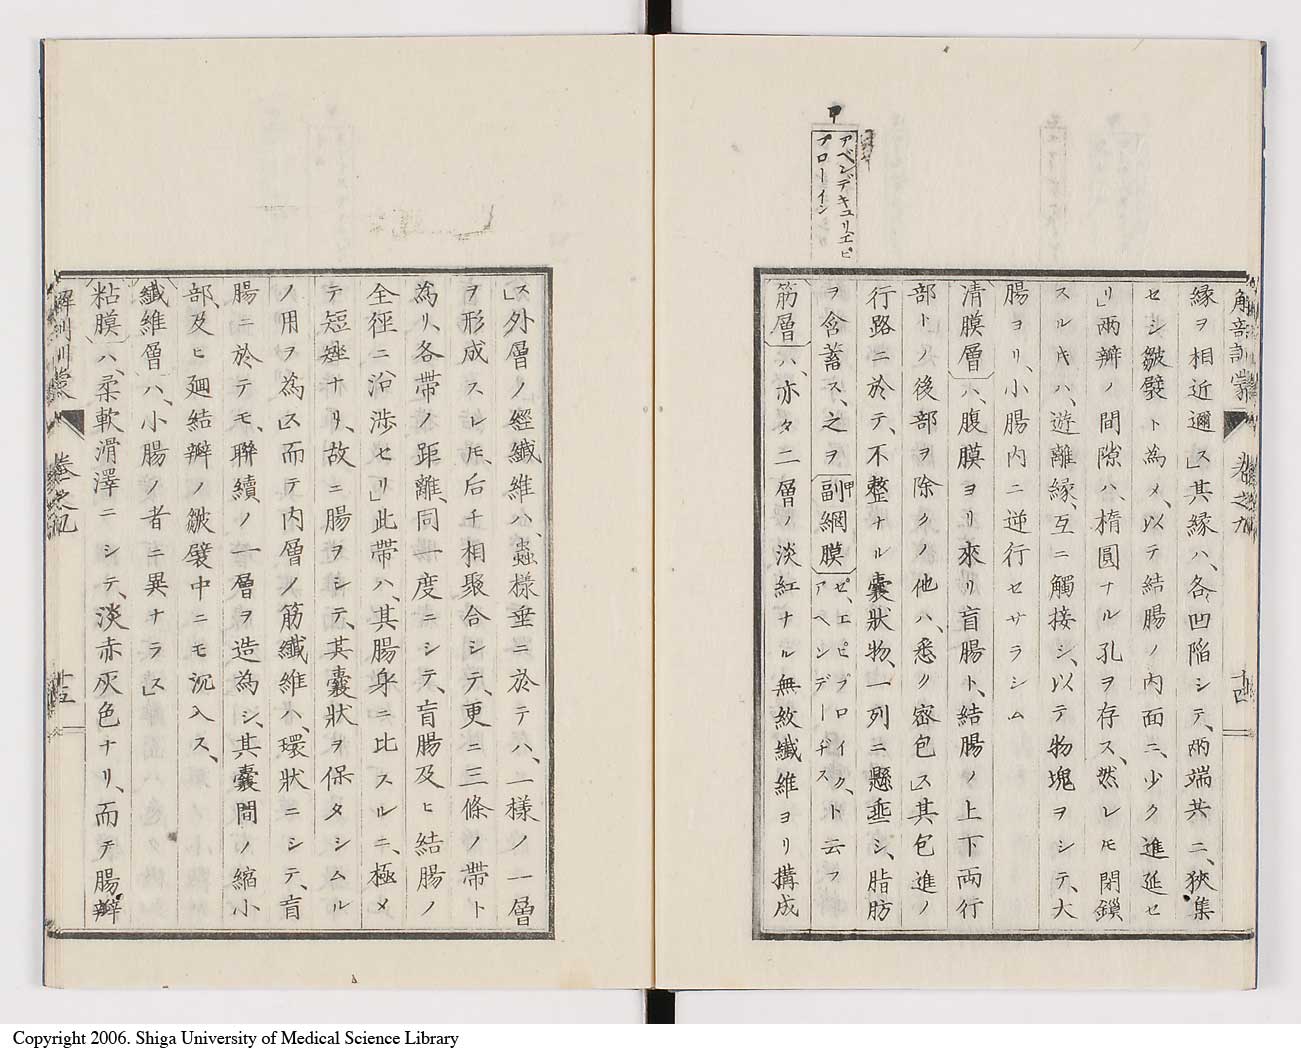 甲
アペンデキュリエピ
プローイン
解剖訓蒙
卷之九
十四
縁ヲ相近邇ス」其縁ハ、各凹陷シテ、兩端共ニ、狹集
セシ皺襞ト為メ、以テ結腸ノ内面ニ、少ク進延セ
リ」兩瓣ノ間隙ハ、楕圓ナル孔ヲ存ス、然レ𪜈閉鎖
スルキハ、遊離緣、互ニ觸接シ、以テ物塊ヲシテ、大
腸ヨリ、小腸内ニ逆行セザラシム
清膜層ハ、腹膜ヨリ來リ盲腸ト、結腸ノ上下兩行
部トノ後部ヲ除クノ他ハ、悉ク密包ス」其包進ノ
行路ニ於テ、不整ナル囊狀物、一列ニ懸垂シ、脂肪
ヲ含蓄ス、之ヲ副網膜アペンデーチスピ、エピプロイク、ト云フ
筋層ハ、亦タ二層ノ淡紅ナル無紋纖維ヨリ搆成
ス」外層ノ經纖維ハ、蟲様垂ニ於テハ、一様ノ一層
ヲ形成スレ𪜈、后チ相聚合シテ、更ニ三條ノ帶ト
為リ、各帶ノ距離、同一度ニシテ、盲腸及ヒ結腸ノ
全徑ニ沿渉セリ」此帶ハ、其腸身ニ比スルニ、極メ
テ短矬ナリ、故ニ腸ヲシテ、其囊狀ヲ保タシムル
ノ用ヲ為ス」而テ内層ノ筋纖維ハ、環狀ニシテ、盲
腸ニ於テモ、聯續ノ一層ヲ造為シ、其囊間ノ縮小
部、及ヒ廻結瓣ノ皺襞中ニモ沉入ス、
纖維層ハ、小腸ノ者ニ異ナラス」
粘膜ハ、柔軟滑澤ニシテ、淡赤灰色ナリ、而テ腸瓣
解剖訓蒙
卷之九
十五
Copyright 2006. Shiga University of Medical Science Library